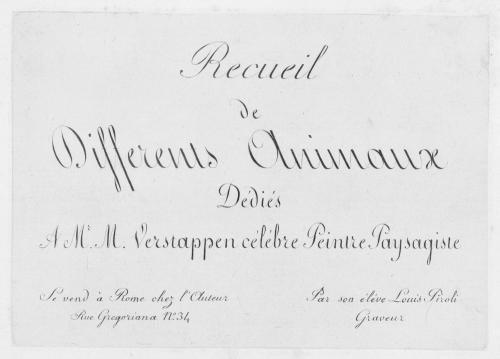 Recueil
de
Differents Animaux
Dédiés
A Mr. M. Verstappen célébre Peintre Paysagiste
Se vend à Rome chez l'Auteur
Rue Gregoriana No. 34
Par son élève Louis Piroli
Graveur